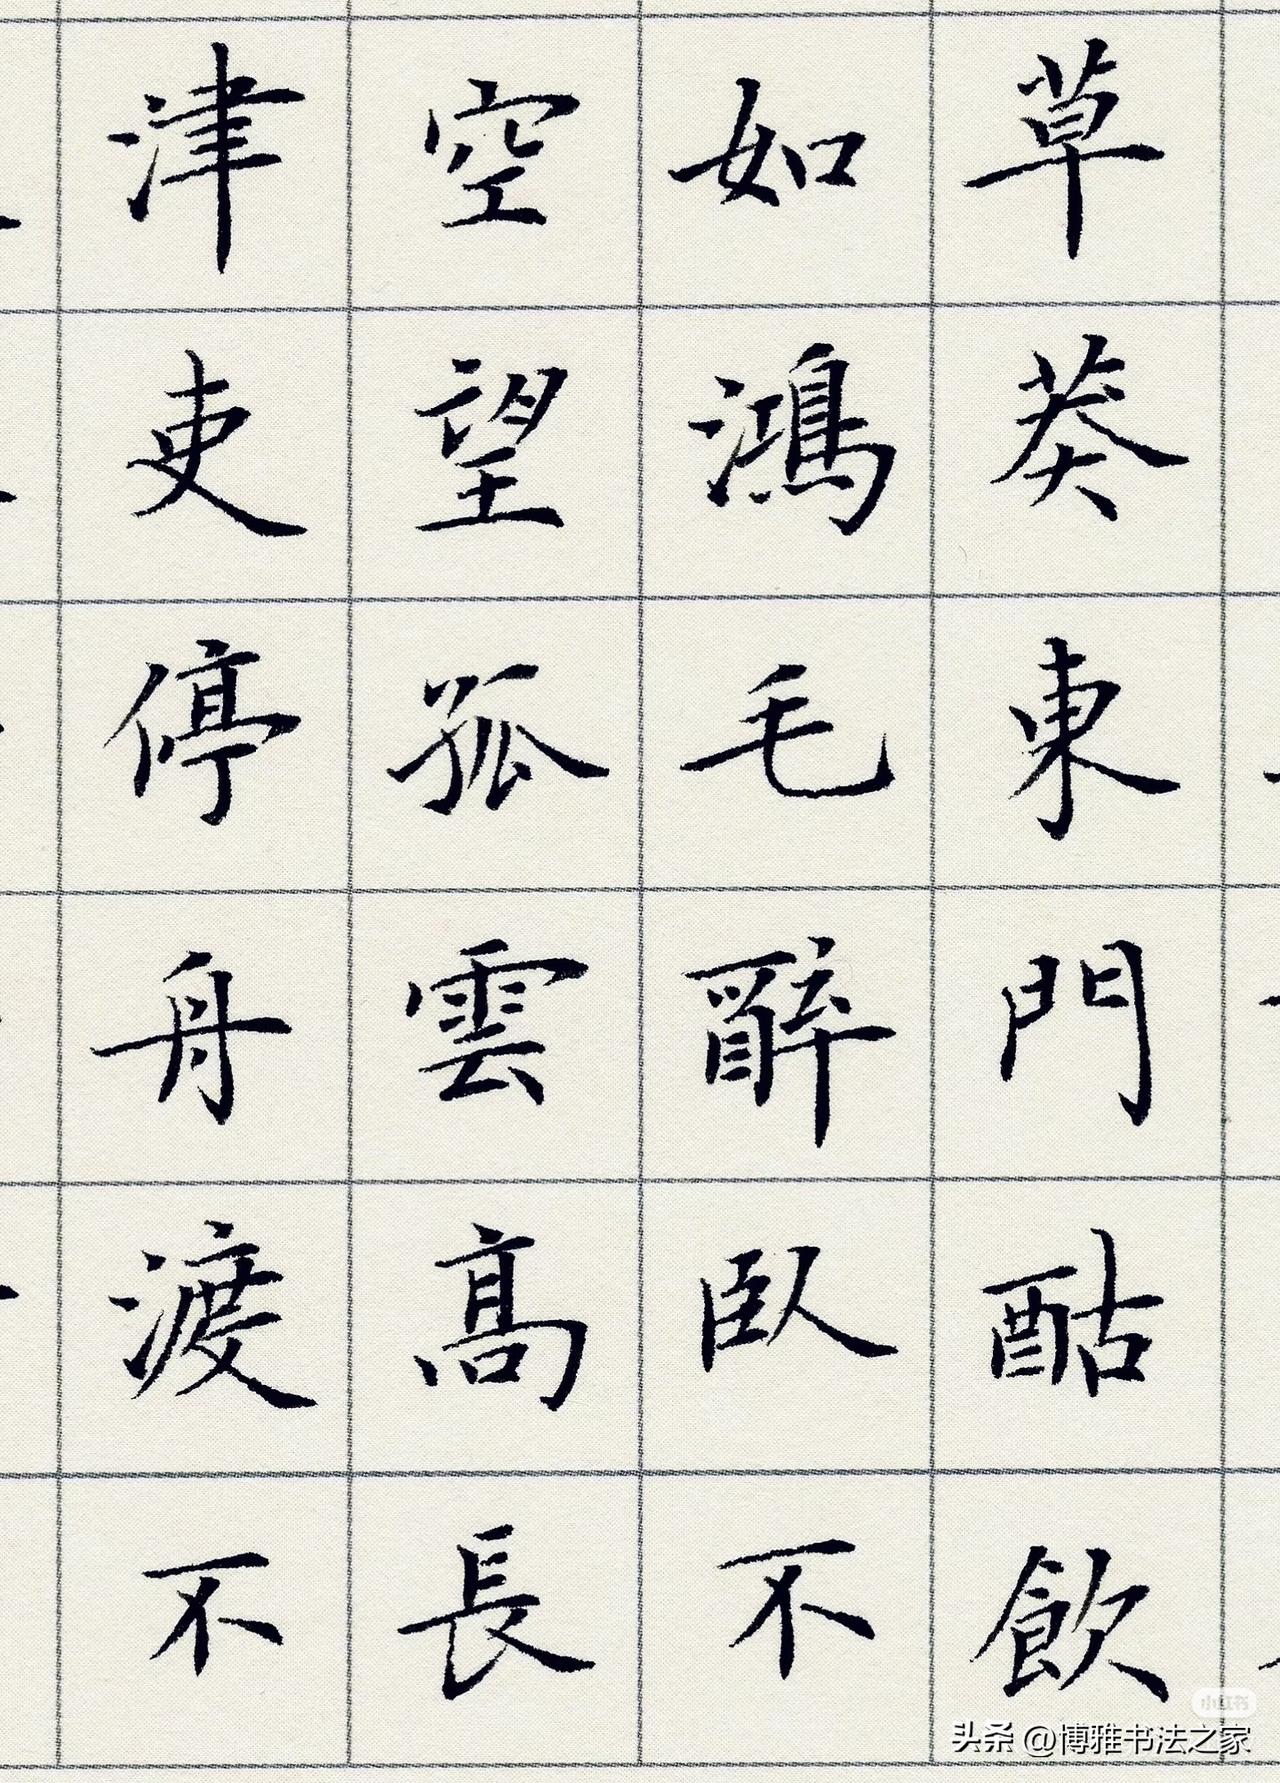 草莽東門酤飲
如鴻毛醉臥不
空望孤雲高長
津吏停舟渡不
小红书
头条 @博雅书法之家